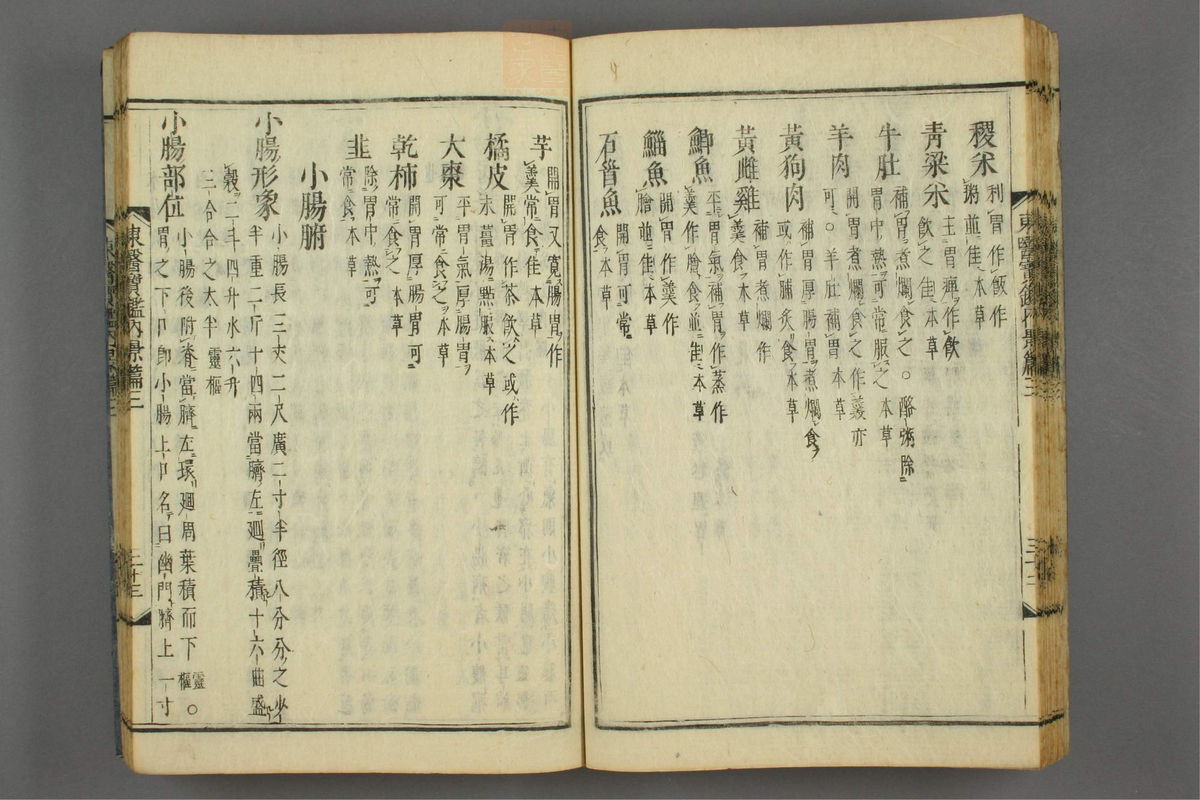 稷米 利胃作飯作
粥並佳 本草
靑粱米 主胃痺作飲
飲之佳 本草
牛肚 補胃煮爛食之○酪粥除
胃中熱可常服之 本草
羊肉 開胃煮爛食之作羹亦
可○羊肚補胃 本草
黃狗肉 補胃厚腸胃煮爛食
或作脯炙食 本草
黃雌雞 補胃煮爛作
羹食 本草
鯽魚 平胃氣補胃作蒸作
羹作膾食並佳 本草
鯔魚 開胃作羹作
膾並佳 本草
石首魚 開胃可常
食 本草
東醫寶鑑內景篇三
芋 開胃又寬腸胃作
羹常食佳 本草
橘皮 開胃作茶飲之或作
末薑湯點服 本草
大棗 平胃氣厚腸胃
可常食之 本草
乾柿 開胃厚腸胃可
常食之 本草
韭 除胃中熱可
常食 本草
小腸腑
小腸形象 小腸長三丈二尺廣二寸半徑八分分之少
半重二斤十四兩當臍左廻疊積十六曲盛
穀二斗四升水六升
三合合之太半 靈樞
小腸部位 小腸後附脊當臍左環廻周葉積而下 靈樞○
胃之下口卽小腸上口名曰幽門臍上一寸
東醫寶鑑內景篇三
二十三